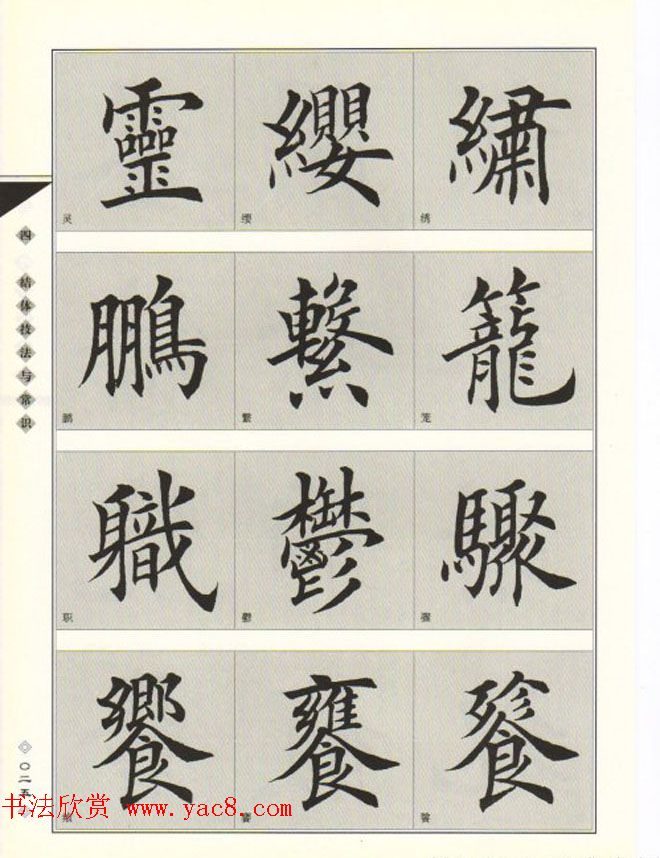 靈 纓 繡
灵 缨 绣
鵬 繫 籠
鹏 繫 笼
軄 鬱 驟
职 鬱 骤
饗 饔 餮
飨 饔 餮
四 结体技法与常识
〇二五
书法欣赏 www.yac8.com